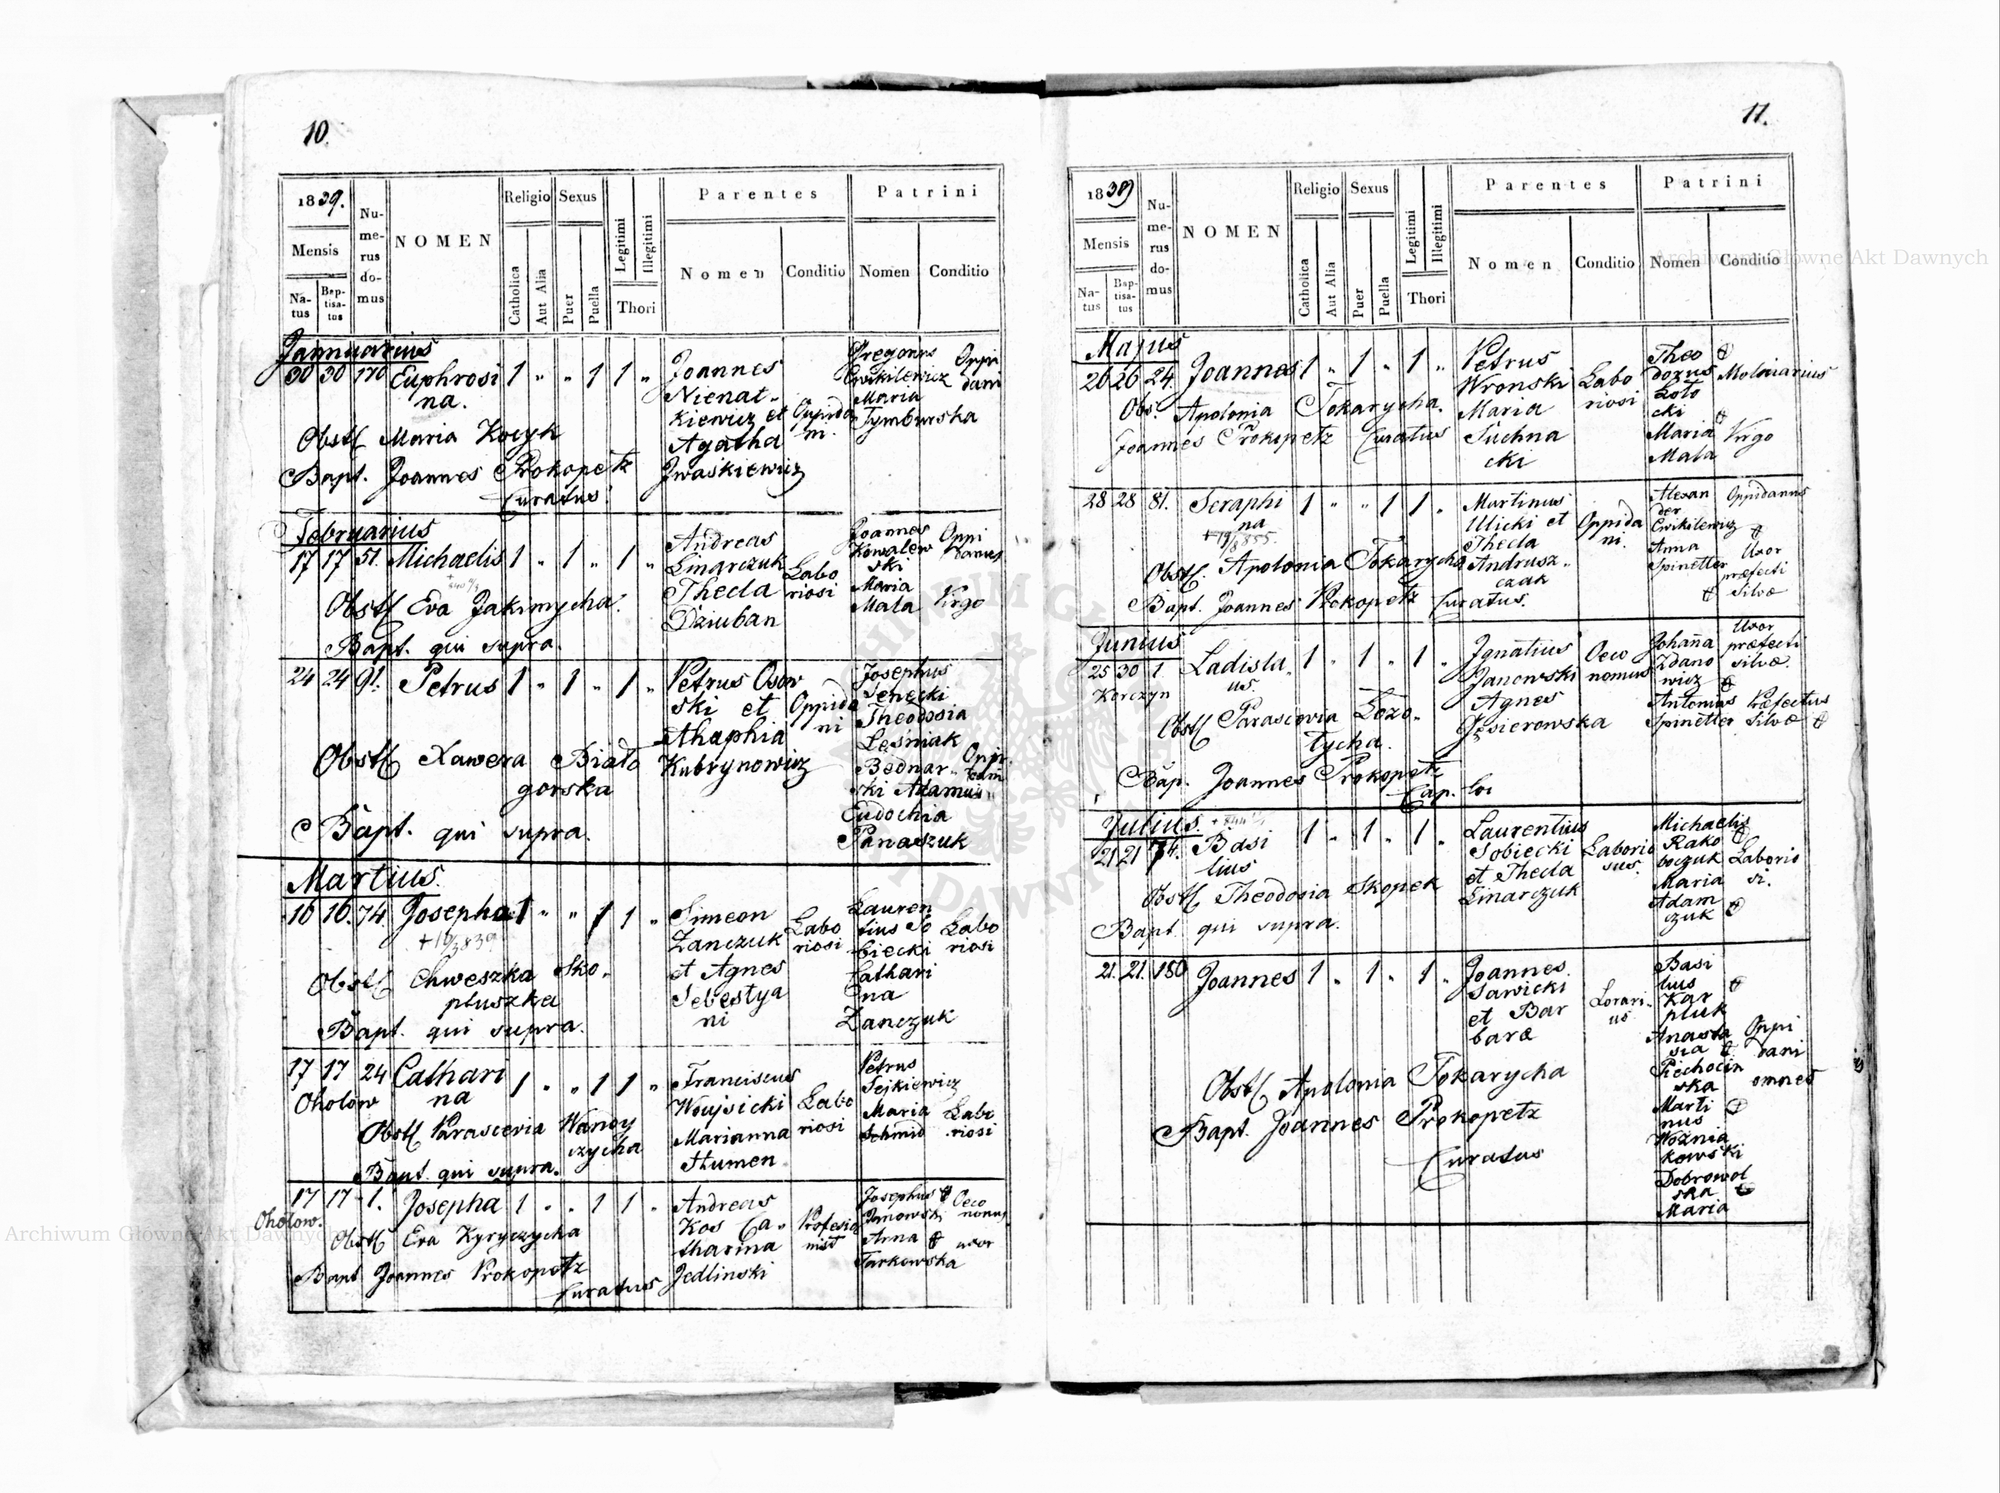 10.
1839.
Mensis
Na-
tus
Bap-
tisa-
tus
Nu-
me-
rus
do-
mus
NOMEN
Religio
Catholica
Aut Alia
Sexus
Puer
Puella
Legitimi
Illegitimi
Thori
Parentes
Nomen
Conditio
Patrini
Nomen
Conditio
Januarius
30 30 170 Euphrosi 1 " " 1 1 "
na.
Joannes
Nienat-
kiewicz et
Agatha
Jwaskiewicz
Oppida
ni.
Gregorius
Cwikilewicz
Maria
Tymburska
Oppi
dani
Obst. Maria Kocyk
Bapt. Joannes Prokopetz
Curatus.
Februarius
17 17 51. Michaelis 1 " 1 " 1 "
Andreas
Smarczuk
Thecla
Dziuban
Labo
riosi
Joannes
Kowalew
ski
Maria
Mala
Oppi
danus
Virgo
Obst. Eva Jakimycha.
Bapt. qui supra.
24 24 91. Petrus 1 " 1 " 1 "
Petrus Osow
ski et
Ahaphia
Kubrynowicz
Oppida
ni
Josephus
Senecki
Theodosia
Leśniak
Bednar-
ski Adamus
Eudochia
Panaszuk
Obst. Xawera Biało
gorska
Bapt. qui supra.
Martius.
16 16. 74. Josepha 1 " " 1 1 "
Simeon
Zanczuk
et Agnes
Sebestya
ni
Labo
riosi
Lauren
tius So
biecki
Cathari
na
Zanczuk
Labo
riosi
Obst. Chweszka Sko-
pluszka
Bapt. qui supra.
17 17 24 Cathari 1 " " 1 1 "
na
Oholow
Franciscus
Woujsicki
Marianna
Humen
Labo
riosi
Petrus
Sejkiewicz
Maria
Schmid
Labo
riosi
Obst. Parascevia Wandy
czycha
Bapt. qui supra.
17 17 1. Josepha 1 " " 1 1 "
Oholow.
Andreas
Kos Ca-
tharina
Jedlinski
Profesio
nist
Josephus
Janowski
Anna
Tarkowska
Oeco
nomus
uxor
Obst. Eva Kyryczycha
Bapt Joannes Prokopetz
Curatus
11.
1839
Mensis
Na-
tus
Bap-
tisa-
tus
Nu-
me-
rus
do-
mus
NOMEN
Religio
Catholica
Aut Alia
Sexus
Puer
Puella
Legitimi
Illegitimi
Thori
Parentes
Nomen
Conditio
Patrini
Nomen
Conditio
Majus
26 26 24. Joannes 1 " 1 " 1 "
Petrus
Wronski
Maria
Suchna
cki
Labo
riosi
Theo
dorus
Zoto
cki
Maria
Mala
Molinarius
Virgo
Obs. Apolonia Tokarycha.
Joannes Prokopetz Curatus
28 28 81. Seraphi 1 " " 1 1 "
na
+19/8 855.
Martinus
Ulicki et
Thecla
Andrusz-
czak
Oppida
ni.
Alexan
der
Cwikilewicz
Anna
Spinetter
Oppidanus
Uxor
præfecti
silvæ
Obst. Apolonia Tokarycha
Bapt. Joannes Prokopetz Curatus.
Junius
25 30 1. Ladisla- 1 " 1 " 1 "
us.
Korczyn
Ignatius
Janowski
Agnes
Jesierowska
Oeco
nomus
Johanna
Zdano
wicz
Antonius
Spinetter
Uxor
præfecti
silvæ.
Præfectus
silvæ
Obst. Parascevia Lozo-
tycha.
Bap. Joannes Prokopetz
Cap. loc
Julius.
21 21 74. Basi 1 " 1 " 1 "
lius
Laurentius
Sobiecki
et Thecla
Smarczuk
Laborio
sus.
Michaelis
Rako
boczuk
Maria
Adam
czuk
Laborio
si.
Obst. Theodosia Skopek
Bapt. qui supra.
21. 21. 180 Joannes 1 " 1 " 1 "
Joannes
Sawicki
et Bar
baræ
Lorari-
us
Basi
lius
Kar
pluk
Anasta
sia
Piechocin
ska
Marti
nus
Woźnia
kowski
Dobrowol
ska
Maria
Oppi
dani
omnes
Obst. Apolonia Tokarycha
Bapt. Joannes Prokopetz
Curatus
Archiwum Głowne Akt Dawnych
Archiwum Głowne Akt Dawnych